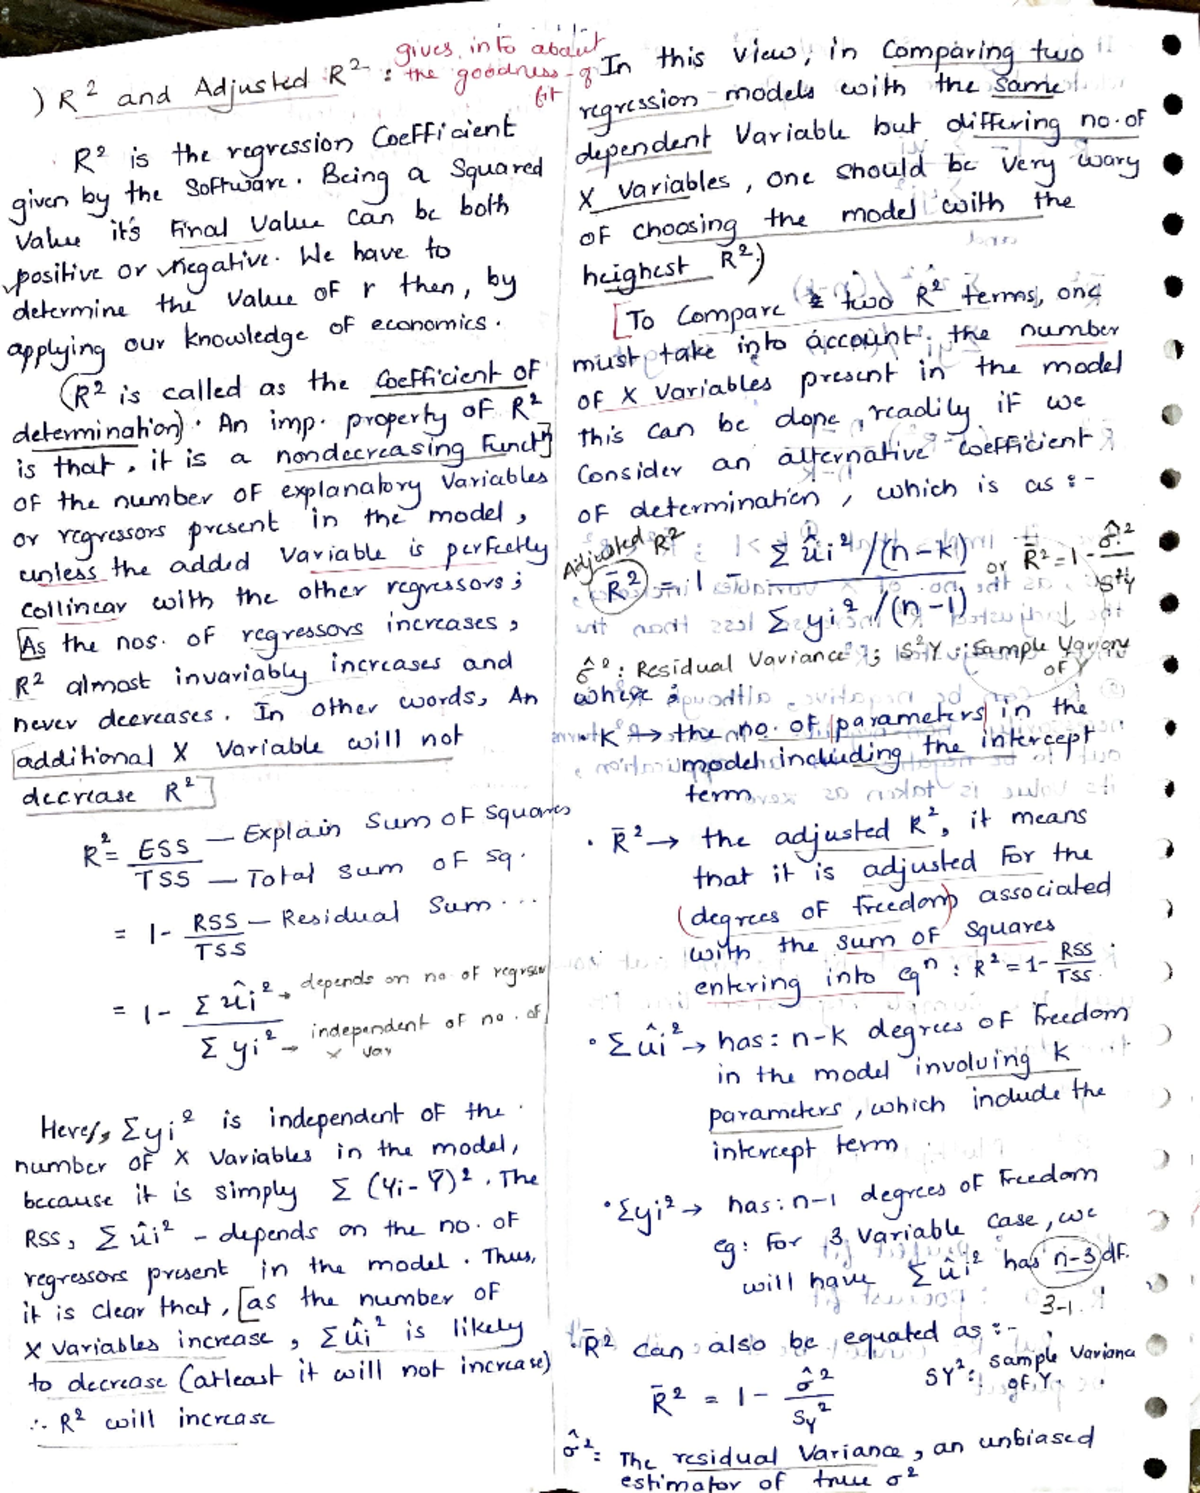 ) R² and Adjusted R² : gives info about
the goodness of
fit
R² is the regression Coefficient
given by the Software. Being a Squared
Value it's Final Value can be both
positive or negative. We have to
determine the value of r then, by
applying our knowledge of economics.
(R² is called as the Coefficient of
determination). An imp. property of R²
is that, it is a nondecreasing Functⁿ]
of the number of explanatory variables
or regressors present in the model,
unless the added variable is perfectly
collinear with the other regressors;
[As the nos. of regressors increases,
R² almost invariably increases and
never deecreases. In other words, An
additional X Variable will not
decrease R²]
R² = ESS — Explain Sum of Squares
TSS — Total sum of sq.
= 1- RSS — Residual Sum ...
TSS
= 1- Σ ûi² → depends on no of regressor
Σ yi² → independent of no. of
x var
Here, Σyi² is independent of the
number of X Variables in the model,
because it is simply Σ (Yi - Ȳ)². The
RSS, Σ ûi² - depends on the no. of
regressors present in the model. Thus,
it is clear that, [as the number of
X variables increase, Σûi² is likely
to decrease (atleast it will not increase)
∴ R² will increase
In this view, in Comparing two
regression models with the same
dependent Variable but differing no. of
X Variables, one should be very wary
of choosing the model with the
heighest R².)
[To Compare two R² terms, one
must take into account, the number
of X Variables present in the model
this can be done readily if we
Consider an alternative coefficient
of determination, which is as :-
Adjusted R²
R̄² = 1 - Σ ûi² /(n-k) or R̄² = 1 - σ̂²
Σ yi² /(n-1) S²y
σ̂² : Residual Variance ; S²Y : Sample Variance
of Y
where ;
K → the no. of parameters in the
model including the intercept
term
• R̄² → the adjusted R², it means
that it is adjusted for the
(degrees of freedom) associated
with the sum of squares
entering into eqⁿ : R² = 1- RSS
TSS.
• Σûi² → has : n-k degrees of freedom
in the model involving k
parameters, which include the
intercept term
• Σyi² → has : n-1 degrees of freedom
eg: For 3 variable case, we
will have Σûi² has n-3 df.
3-1.
R̄² can also be equated as :-
R̄² = 1 - σ̂²
Sy²
SY² : sample Variance
of Y.
σ̂² : The residual Variance, an unbiased
estimator of true σ²